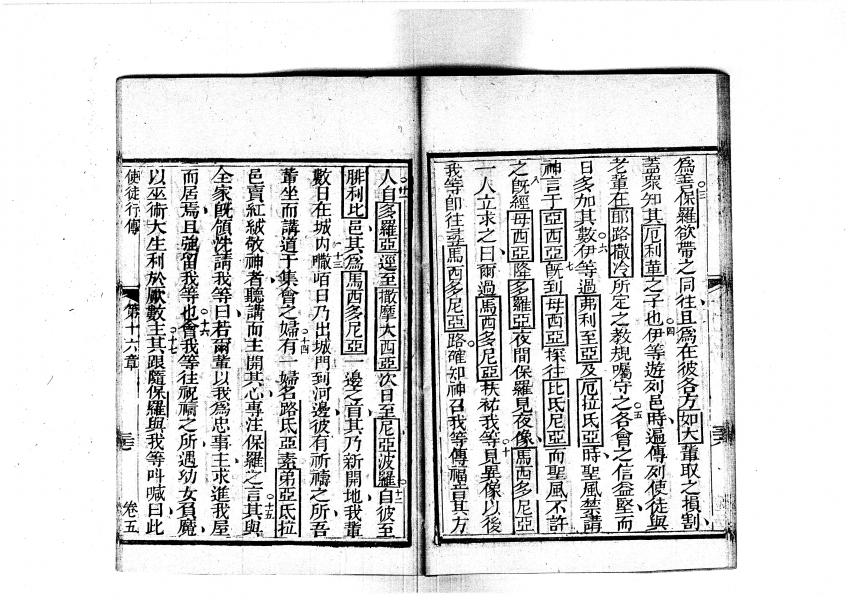 為善保羅欲帶之同往且為在彼各方如大輩取之損割
蓋眾知其厄利輩之子也伊等遊列邑時遍傳列使徒與
老輩在耶路撒冷所定之教規囑守之名會之信益堅而
日多加其數伊等過弗利至亞及厄拉氏亞時聖風禁講
神言于亞西亞既到母西亞探往比氏尼亞而聖風不許
之既經母西亞隆多羅亞夜間保羅見夜像馬西多尼亞
一人立求之曰爾過馬西多尼亞扶祐我等見異像以後
我等即往尋馬西多尼亞路確知神召我等傳福音其方
人自多羅亞逕至撒摩大西亞次日至尼亞波羅自彼至
腓利比邑其為馬西多尼亞一邊之首其乃新開地我輩
數日在城內㗭咟日乃出城門到河邊彼有祈禱之所吾
輩坐而講道于集會之婦有一婦名路氐亞素弟亞氐拉
邑賣紅紱敬神者聽講而主開其心專注保羅之言其與
全家既領洗請我等曰若爾輩以我為忠事主求進我屋
而居焉且強留我等也會我等往祝禱之所遇幼女負魔
以巫術大生利於厥數主其跟隨保羅與我等叫喊曰此
使徒行傳
第十六章
卷五